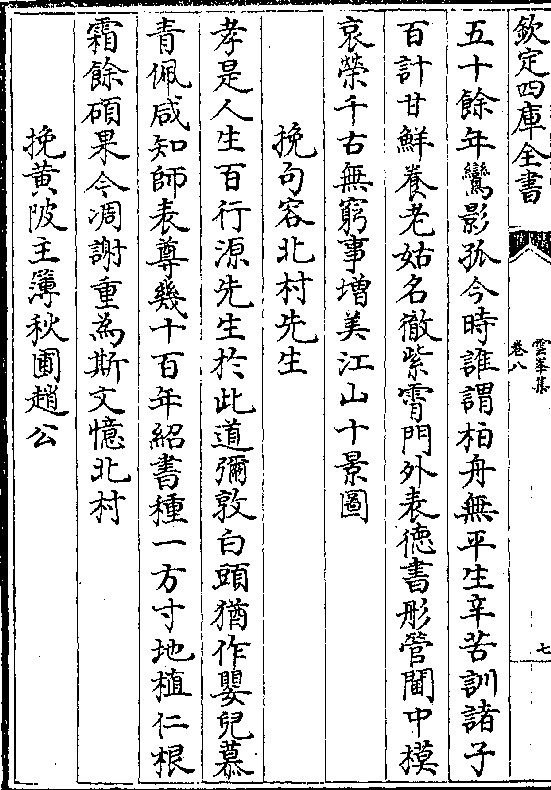 欽定四庫全書
雲峯集
卷八
七
五十餘年鸞影孤今時誰謂柏舟無平生辛苦訓諸子
百計甘鮮養老姑名徹紫霄門外表德書彤管閫中模
哀榮千古無窮事增美江山十景圖
挽句容北村先生
孝是人生百行源先生於此道彌敦白頭猶作嬰兒慕
青佩咸知師表尊幾十百年紹書種一方寸地植仁根
霜餘碩果今凋謝重為斯文憶北村
挽黄陂主簿秋圃趙公